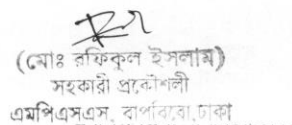 (মোঃ রফিকুল ইসলাম)
সহকারী প্রকৌশলী
এমপিএসএস, বাপাবিবো, ঢাকা